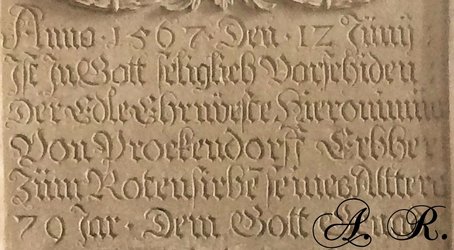 Anno · 1567 · Den · 12 Jünij
Ist In Gott seliglich Vorschiden
Der Edle Ehrnveste Hieronimus
Von Prockendorff Erbher
Züm Rotensirbe seines Altters
79 Jar · Dem Gott
A. R.